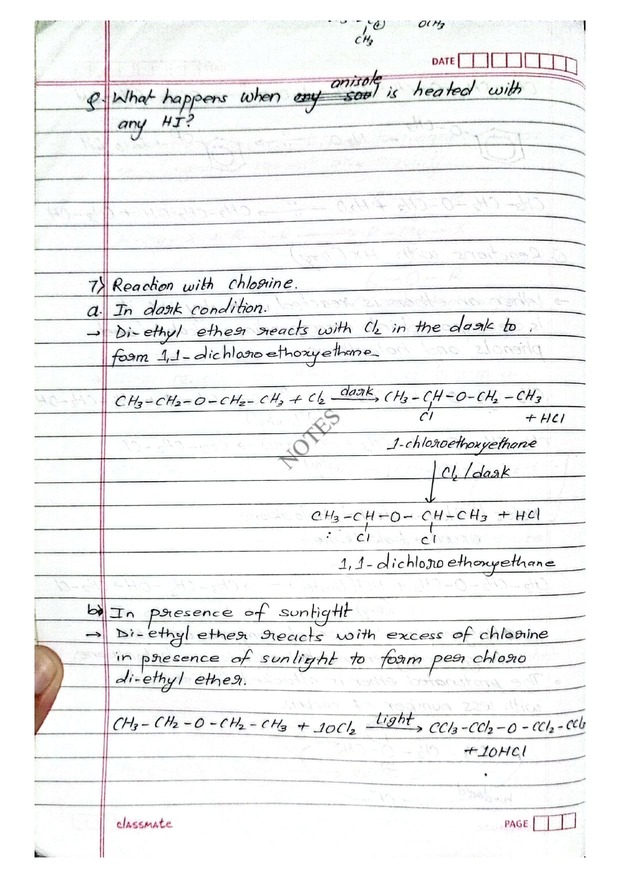 CH3
OCH3
DATE
Q. What happens when anisole is heated with
any HI?
7) Reaction with chlorine.
a. In dark condition.
→ Di-ethyl ether reacts with Cl2 in the dark to
form 1,1-dichloroethoxyethane.
CH3-CH2-O-CH2-CH3 + Cl2 —dark→ CH3-CH-O-CH2-CH3
Cl + HCl
NOTES
1-chloroethoxyethane
Cl2/dark
CH3-CH-O-CH-CH3 + HCl
Cl Cl
1,1-dichloroethoxyethane
b) In presence of suntightt
→ Di-ethyl ether reacts with excess of chlorine
in presence of sunlight to form per chloro
di-ethyl ether.
CH3-CH2-O-CH2-CH3 + 10Cl2 —light→ CCl3-CCl2-O-CCl2-CCl3
+10HCl
classmate
PAGE